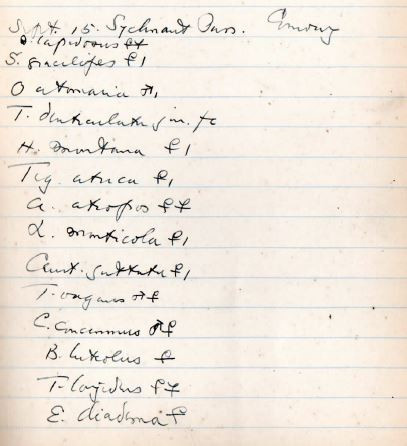 Sept. 15. Sychnant Pass. Conway
D lapidosus ♀♀
S. gracilipes ♀ 1
O atomaria ♂ 1
T. denticulata j in. fe
H. montana ♀ 1
Teg. atrica ♀ 1
A. atropos ♀♀
L. monticola ♀ 1
Ceut. guttata ♀ 1
T. vagans ♂♀
C. concinnus ♂♀
B. luteolus ♀
♀♀
E. diadema ♀